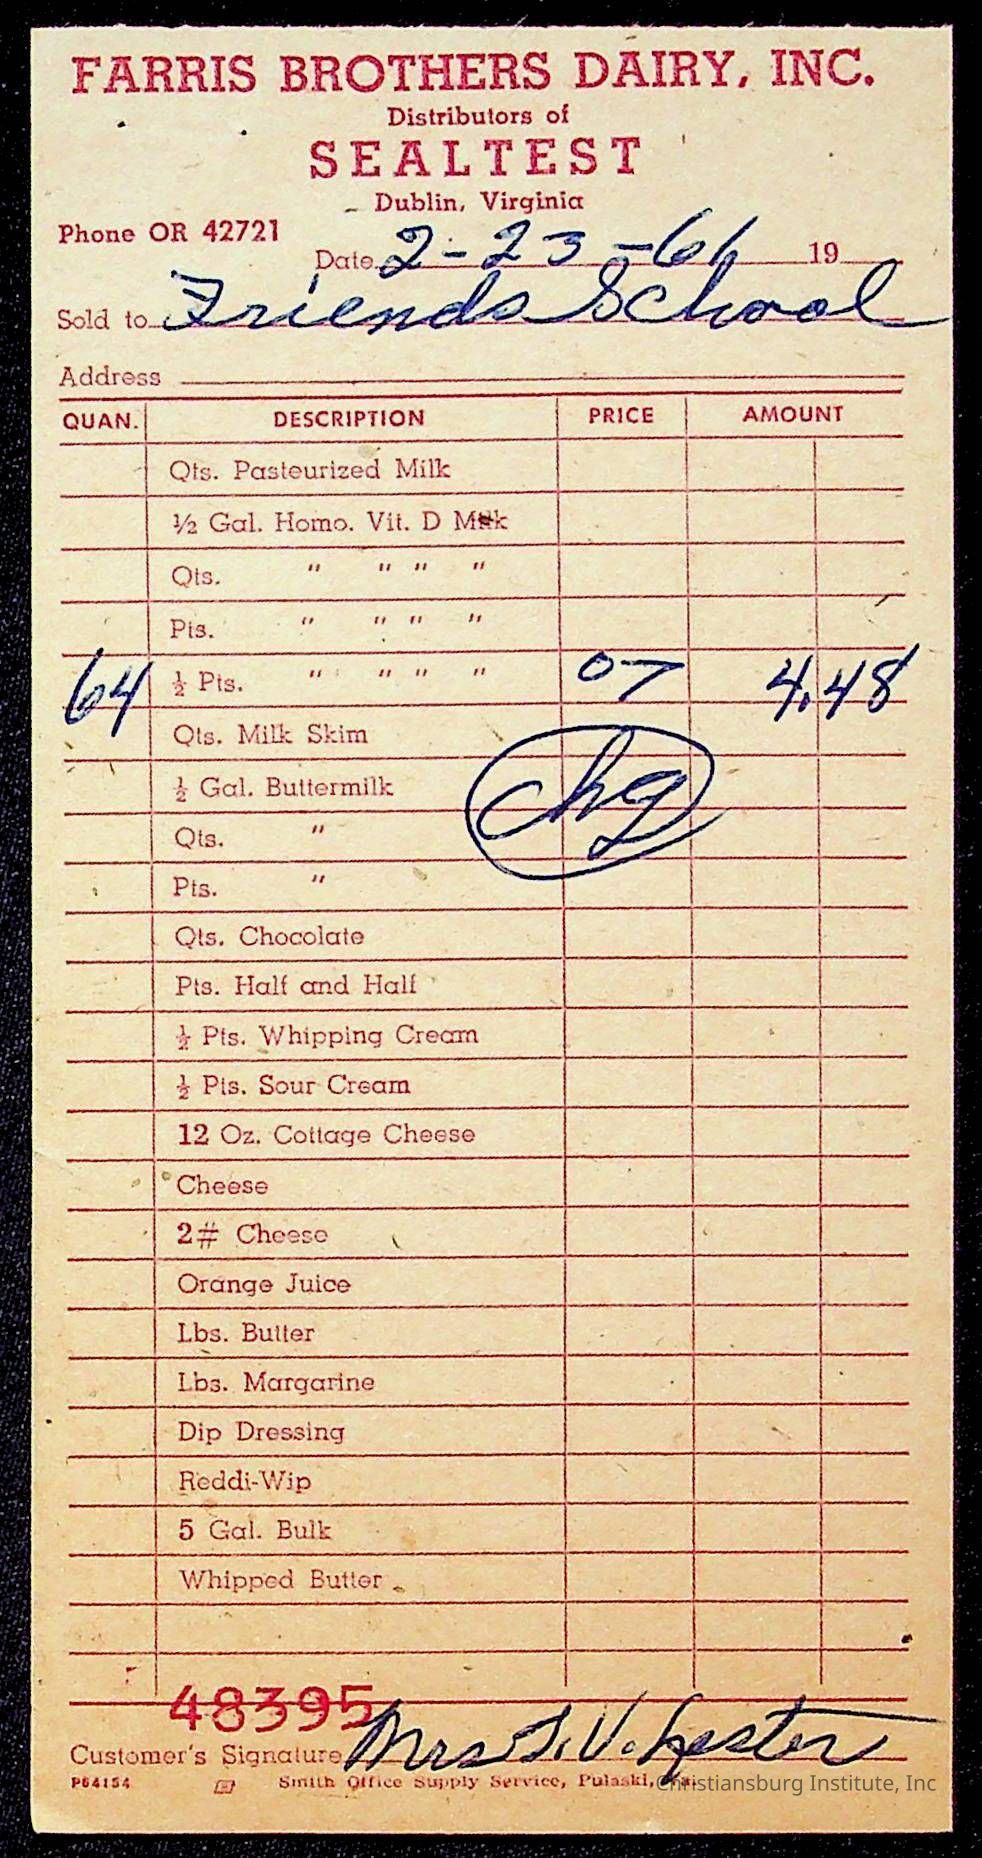 FARRIS BROTHERS DAIRY, INC.
Distributors of
SEALTEST
Dublin, Virginia
Phone OR 42721
Date 2-23-61 19
Sold to Friends School
Address
QUAN. DESCRIPTION PRICE AMOUNT
Qts. Pasteurized Milk
½ Gal. Homo. Vit. D Milk
Qts. " " " "
Pts. " " " "
64 ½ Pts. " " " " 07 4.48
Qts. Milk Skim
chg
½ Gal. Buttermilk
Qts. "
Pts. "
Qts. Chocolate
Pts. Half and Half
½ Pts. Whipping Cream
½ Pts. Sour Cream
12 Oz. Cottage Cheese
Cheese
2# Cheese
Orange Juice
Lbs. Butter
Lbs. Margarine
Dip Dressing
Reddi-Wip
5 Gal. Bulk
Whipped Butter
48395
Customer's Signature Mrs. V. Lester
P64154 Smith Office Supply Service, Pulaski,
Christiansburg Institute, Inc